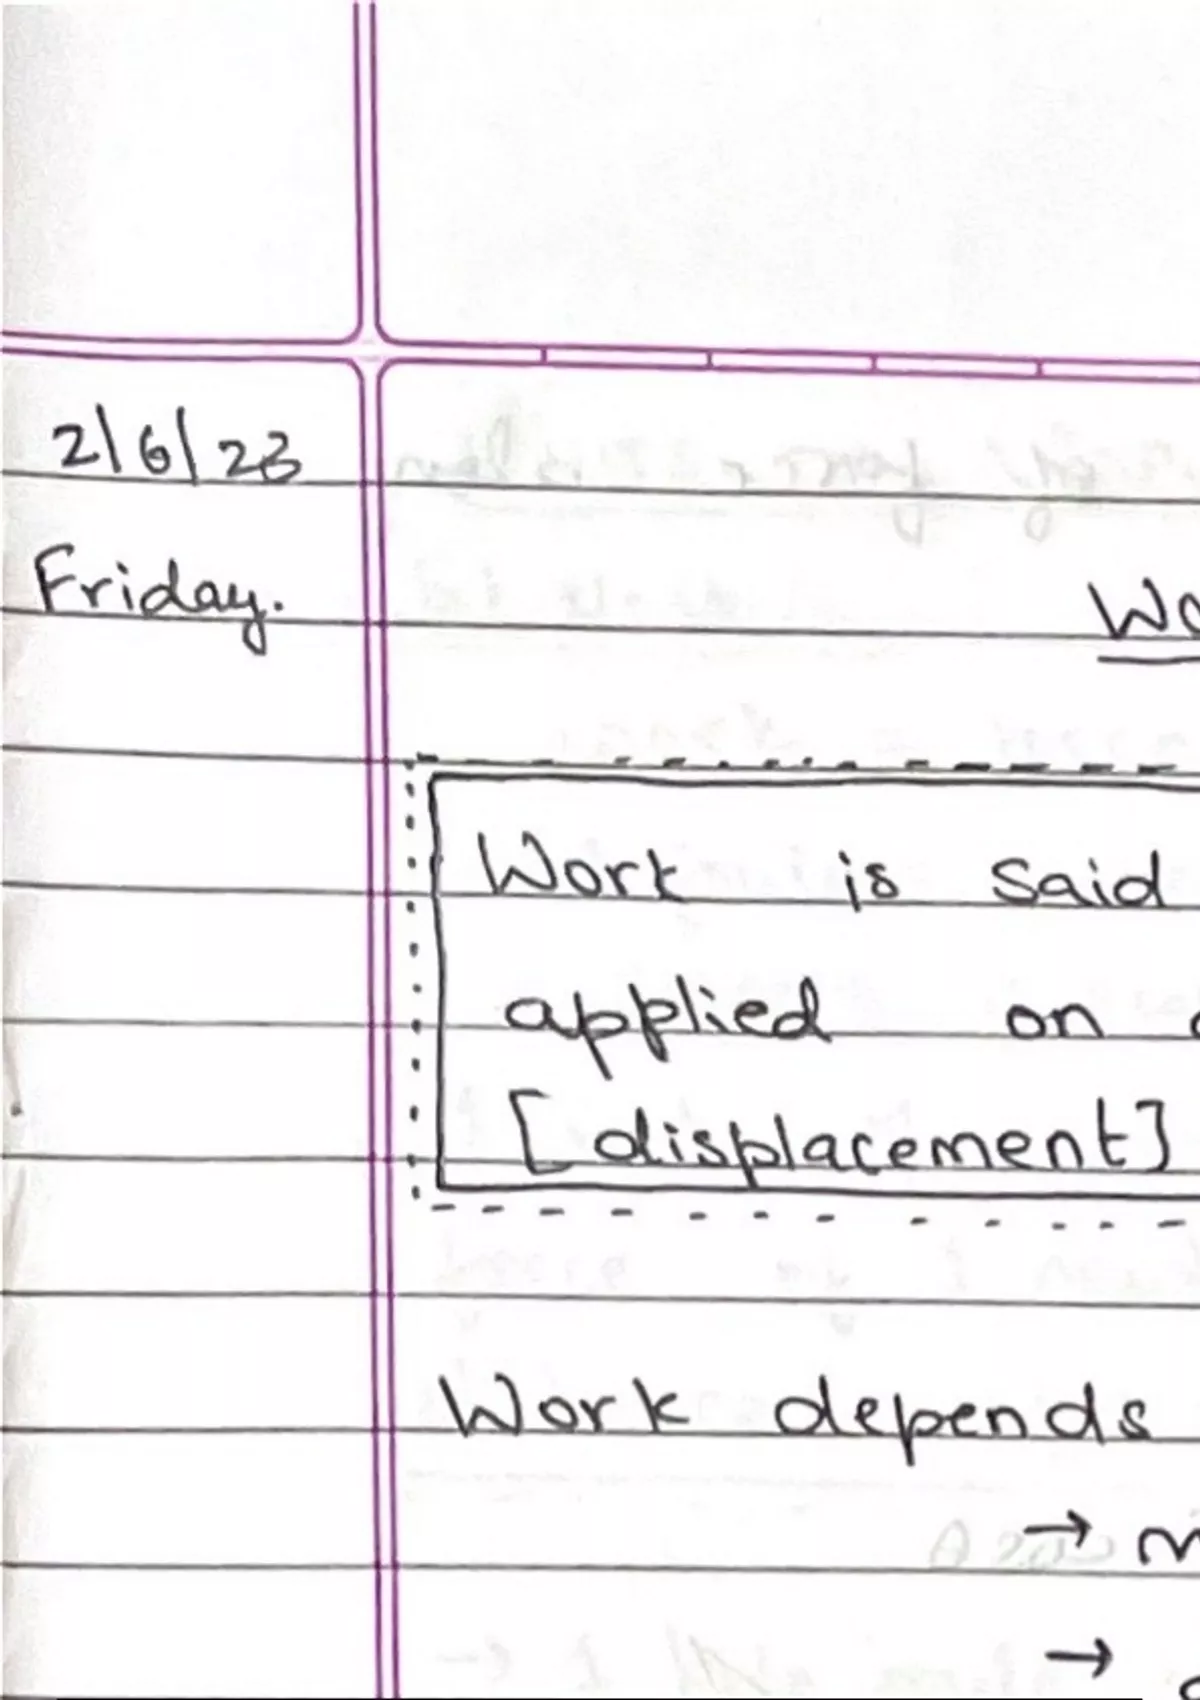 2/6/23
Friday.
Work is said
applied on
[displacement]
Work depends
→
→